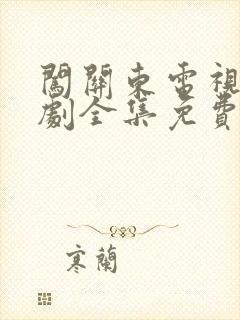 闖關東電視
劇全集免費
寒蘭